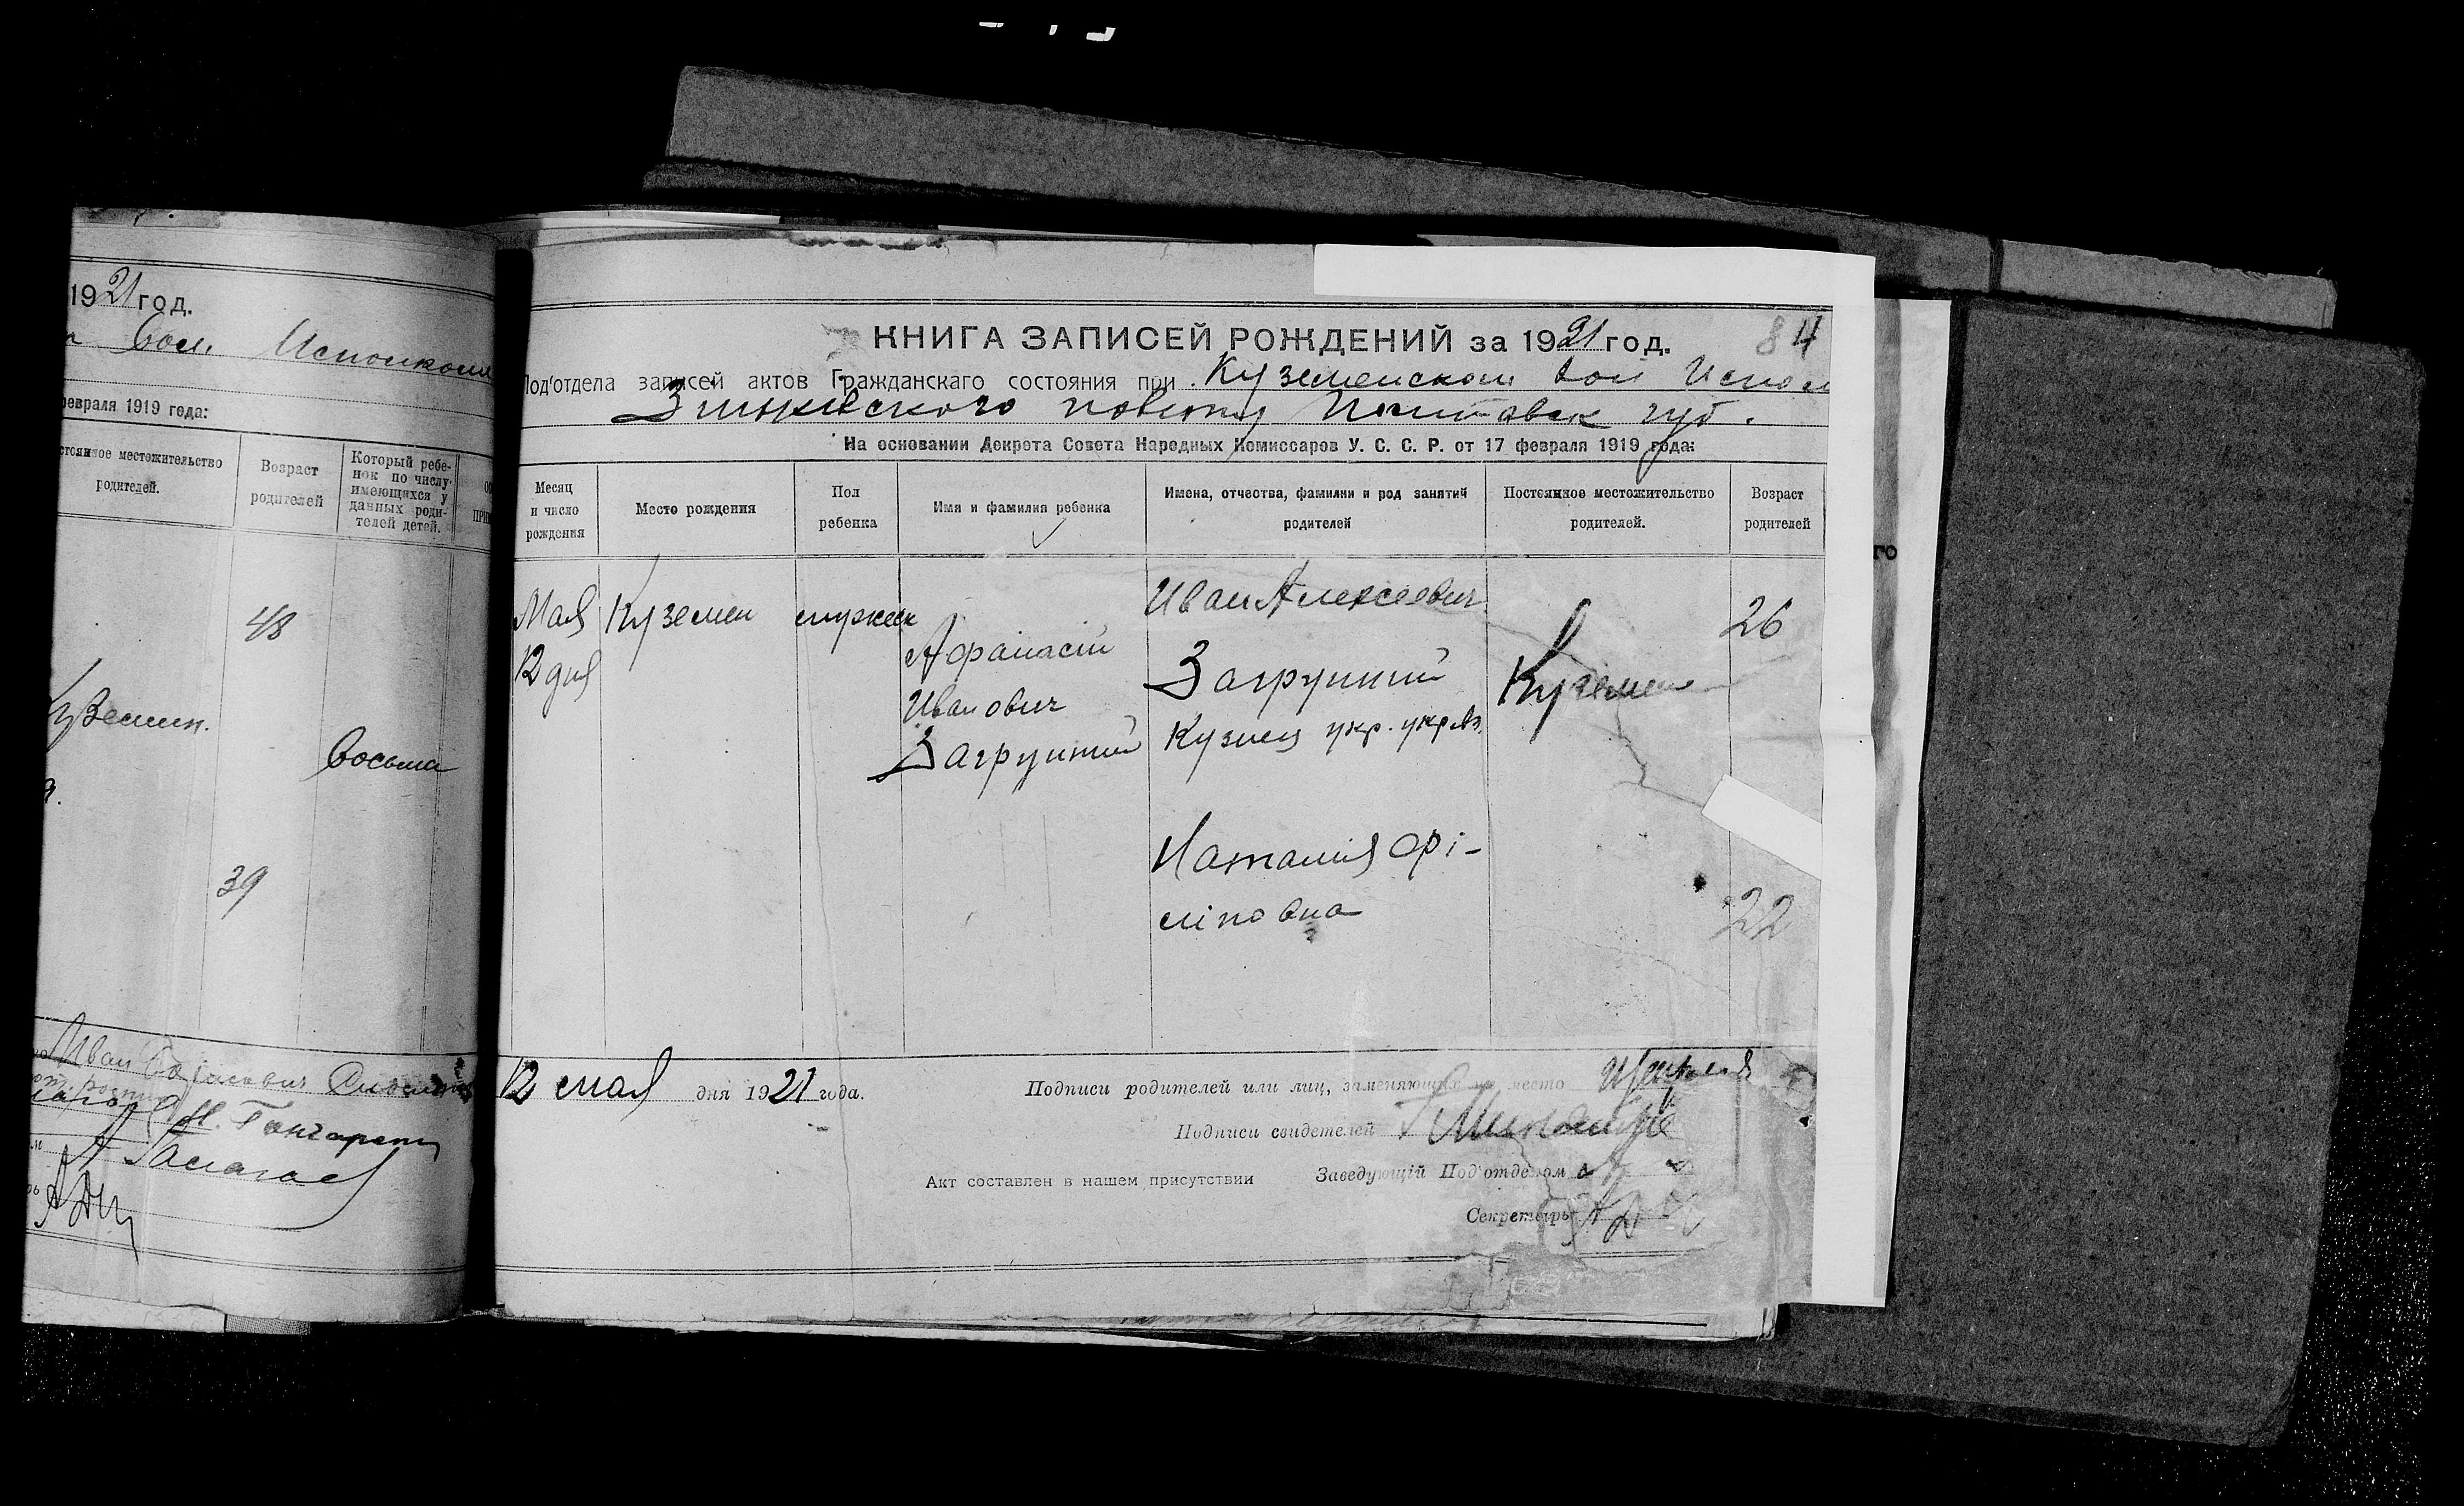 1921 год.
Вол. Исполком
февраля 1919 года:
стоянное местожительство родителей.
Возраст родителей
Который ребе-
нок по числу
имеющихся у
данных роди-
телей детей.
48
Куземин.
восьма
39
Иван
М. Гончарен
КНИГА ЗАПИСЕЙ РОЖДЕНИЙ за 1921 год.
84
Под'отдела записей актов Гражданскаго состояния при Куземенском вол Испол
Зиньквского повиту Полтавск губ.
На основании Декрета Совета Народных Комиссаров У. С. С. Р. от 17 февраля 1919 года:
Месяц
и число
рождения
Место рождения
Пол
ребенка
Имя и фамилия ребенка
Имена, отчества, фамилии и род занятий
родителей
Постоянное местожительство
родителей.
Возраст
родителей
Мая
12 дня
Куземен
мужеск
Афанасій
Иванович
Загруший
Иван Алексеевич
Загруший
Кузнец укр.
Наталия Фі-
ліповна
Куземен
26
22
12 мая дня 1921 года.
Подписи родителей или лиц, заменяющих их место
Подписи свидетелей
Акт составлен в нашем присутствии
Заведующій Под'отделом
Секретарь
го